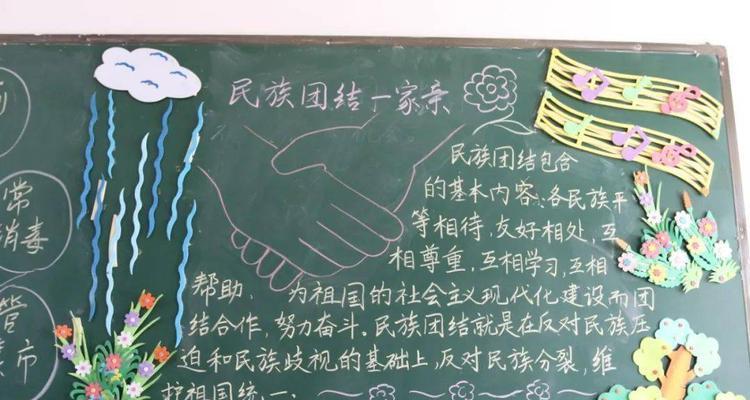 民族团结一家亲
民族团结包含
的基本内容:各民族平
等相待,友好相处,互
相尊重,互相学习,互相
帮助, 为祖国的社会主义现代化建设而团
结合作,努力奋斗.民族团结就是在反对民族压
迫和民族歧视的基础上,反对民族分裂,维
护祖国统一.
常
消毒